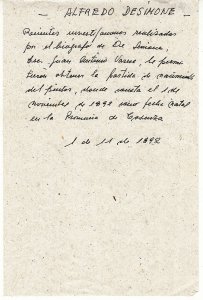 - ALFREDO DESIMONE -
Recientes investigaciones realizadas
por el biógrafo de De Simone,
Juan Antonio Varese, le permi
tieron obtener la partida de nacimiento
del pintor, donde consta el 1 de
noviembre de 1892 como fecha natal
en la Provincia de Cosenza
1 de 11 de 1892